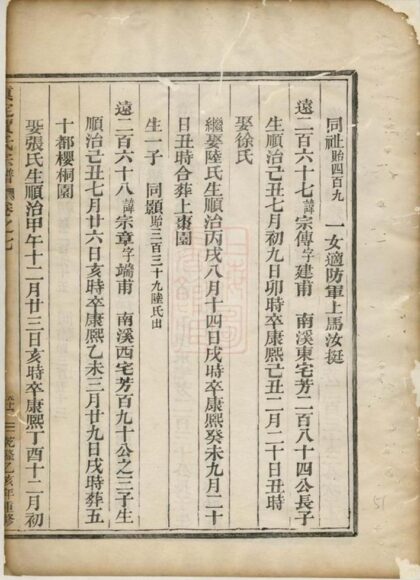 同祉貽四百九 一女適防軍上馬汝挺
遠二百六十七諱宗傳字建甫 南溪東宅芳二百八十四公長子
生順治己丑七月初九日卯時卒康熙己丑二月二十日丑時
娶徐氏
繼娶陸氏生順治丙戌八月十四日戌時卒康熙癸未九月二十
日丑時合葬上棗園
生一子 同顯貽三百三十九陸氏出
遠二百六十八諱宗章字端甫 南溪西宅芳百九十公之三子生
順治己丑七月廿六日亥時卒康熙乙未三月廿九日戌時葬五
十都櫻桐園
娶張氏生順治甲午十二月廿三日亥時卒康熙丁酉十二月初
氏宗譜 卷之七
乾隆乙亥年重修